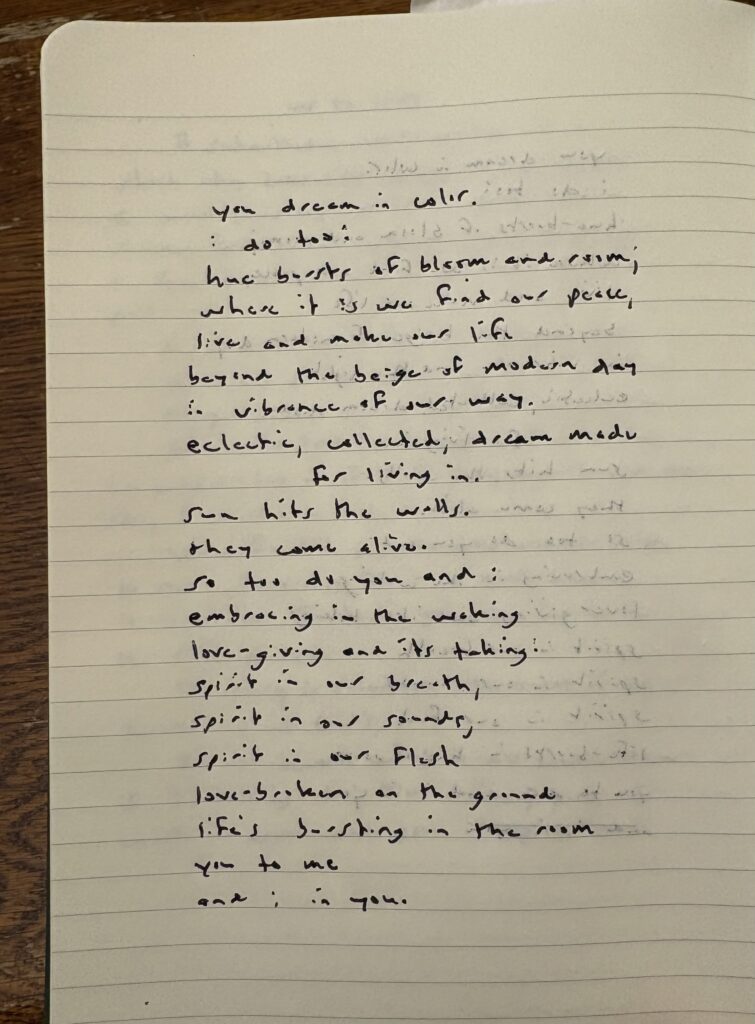 you dream in color.
i do too:
hue bursts of bloom and room;
where it is we find our peace,
live and make our life
beyond the beige of modern day
in vibrance of our way.
eclectic, collected, dream made
for living in.
sun hits the walls.
they come alive.
so too do you and i
embracing in the waking
love-giving and its taking:
spirit in our breath,
spirit in our sounds,
spirit in our flesh
love-broken on the ground
life's bursting in the room
you to me
and i in you.